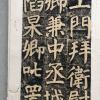 土門拜衛尉
卿兼中丞城
陷杲卿叱罵